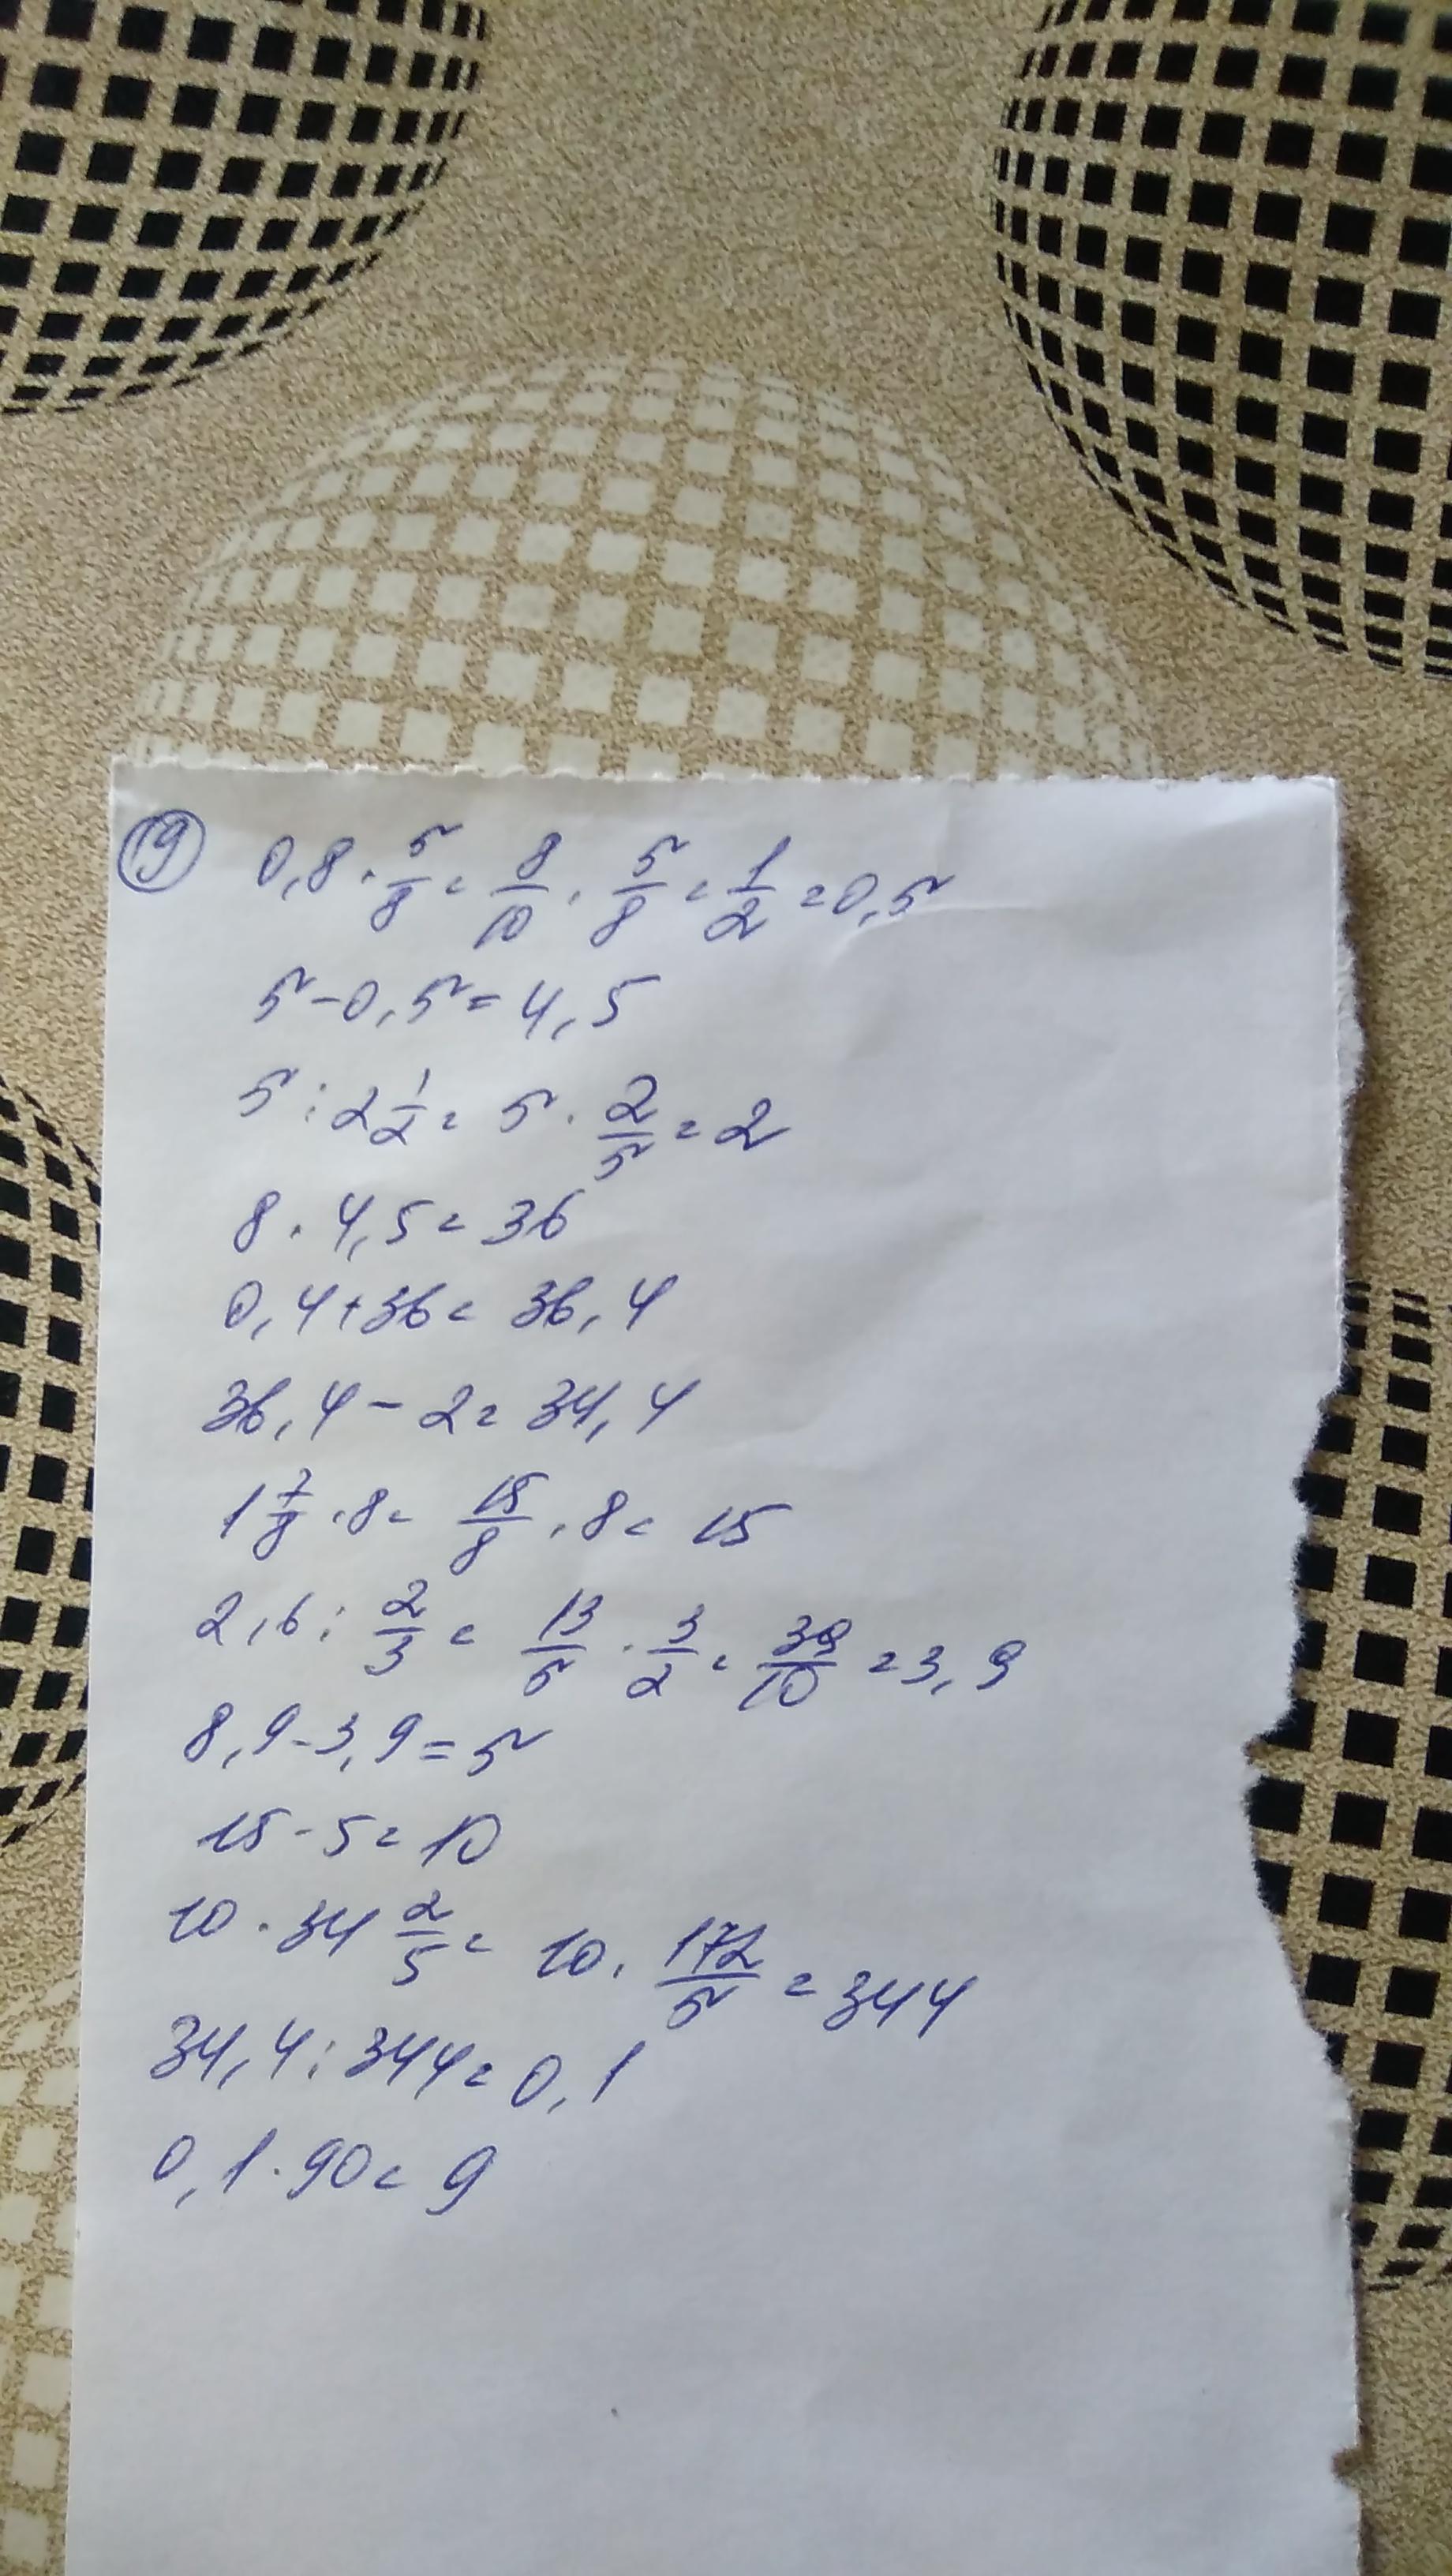 (9) 0,8 · 5/8 = 8/10 · 5/8 = 1/2 = 0,5
5 - 0,5 = 4,5
5 : 2 1/2 = 5 · 2/5 = 2
8 · 4,5 = 36
0,4 + 36 = 36,4
36,4 - 2 = 34,4
1 7/8 · 8 = 15/8 · 8 = 15
2,6 : 2/3 = 13/5 · 3/2 = 39/10 = 3,9
8,9 - 3,9 = 5
15 - 5 = 10
10 · 34 2/5 = 10 · 172/5 = 344
34,4 : 344 = 0,1
0,1 · 90 = 9